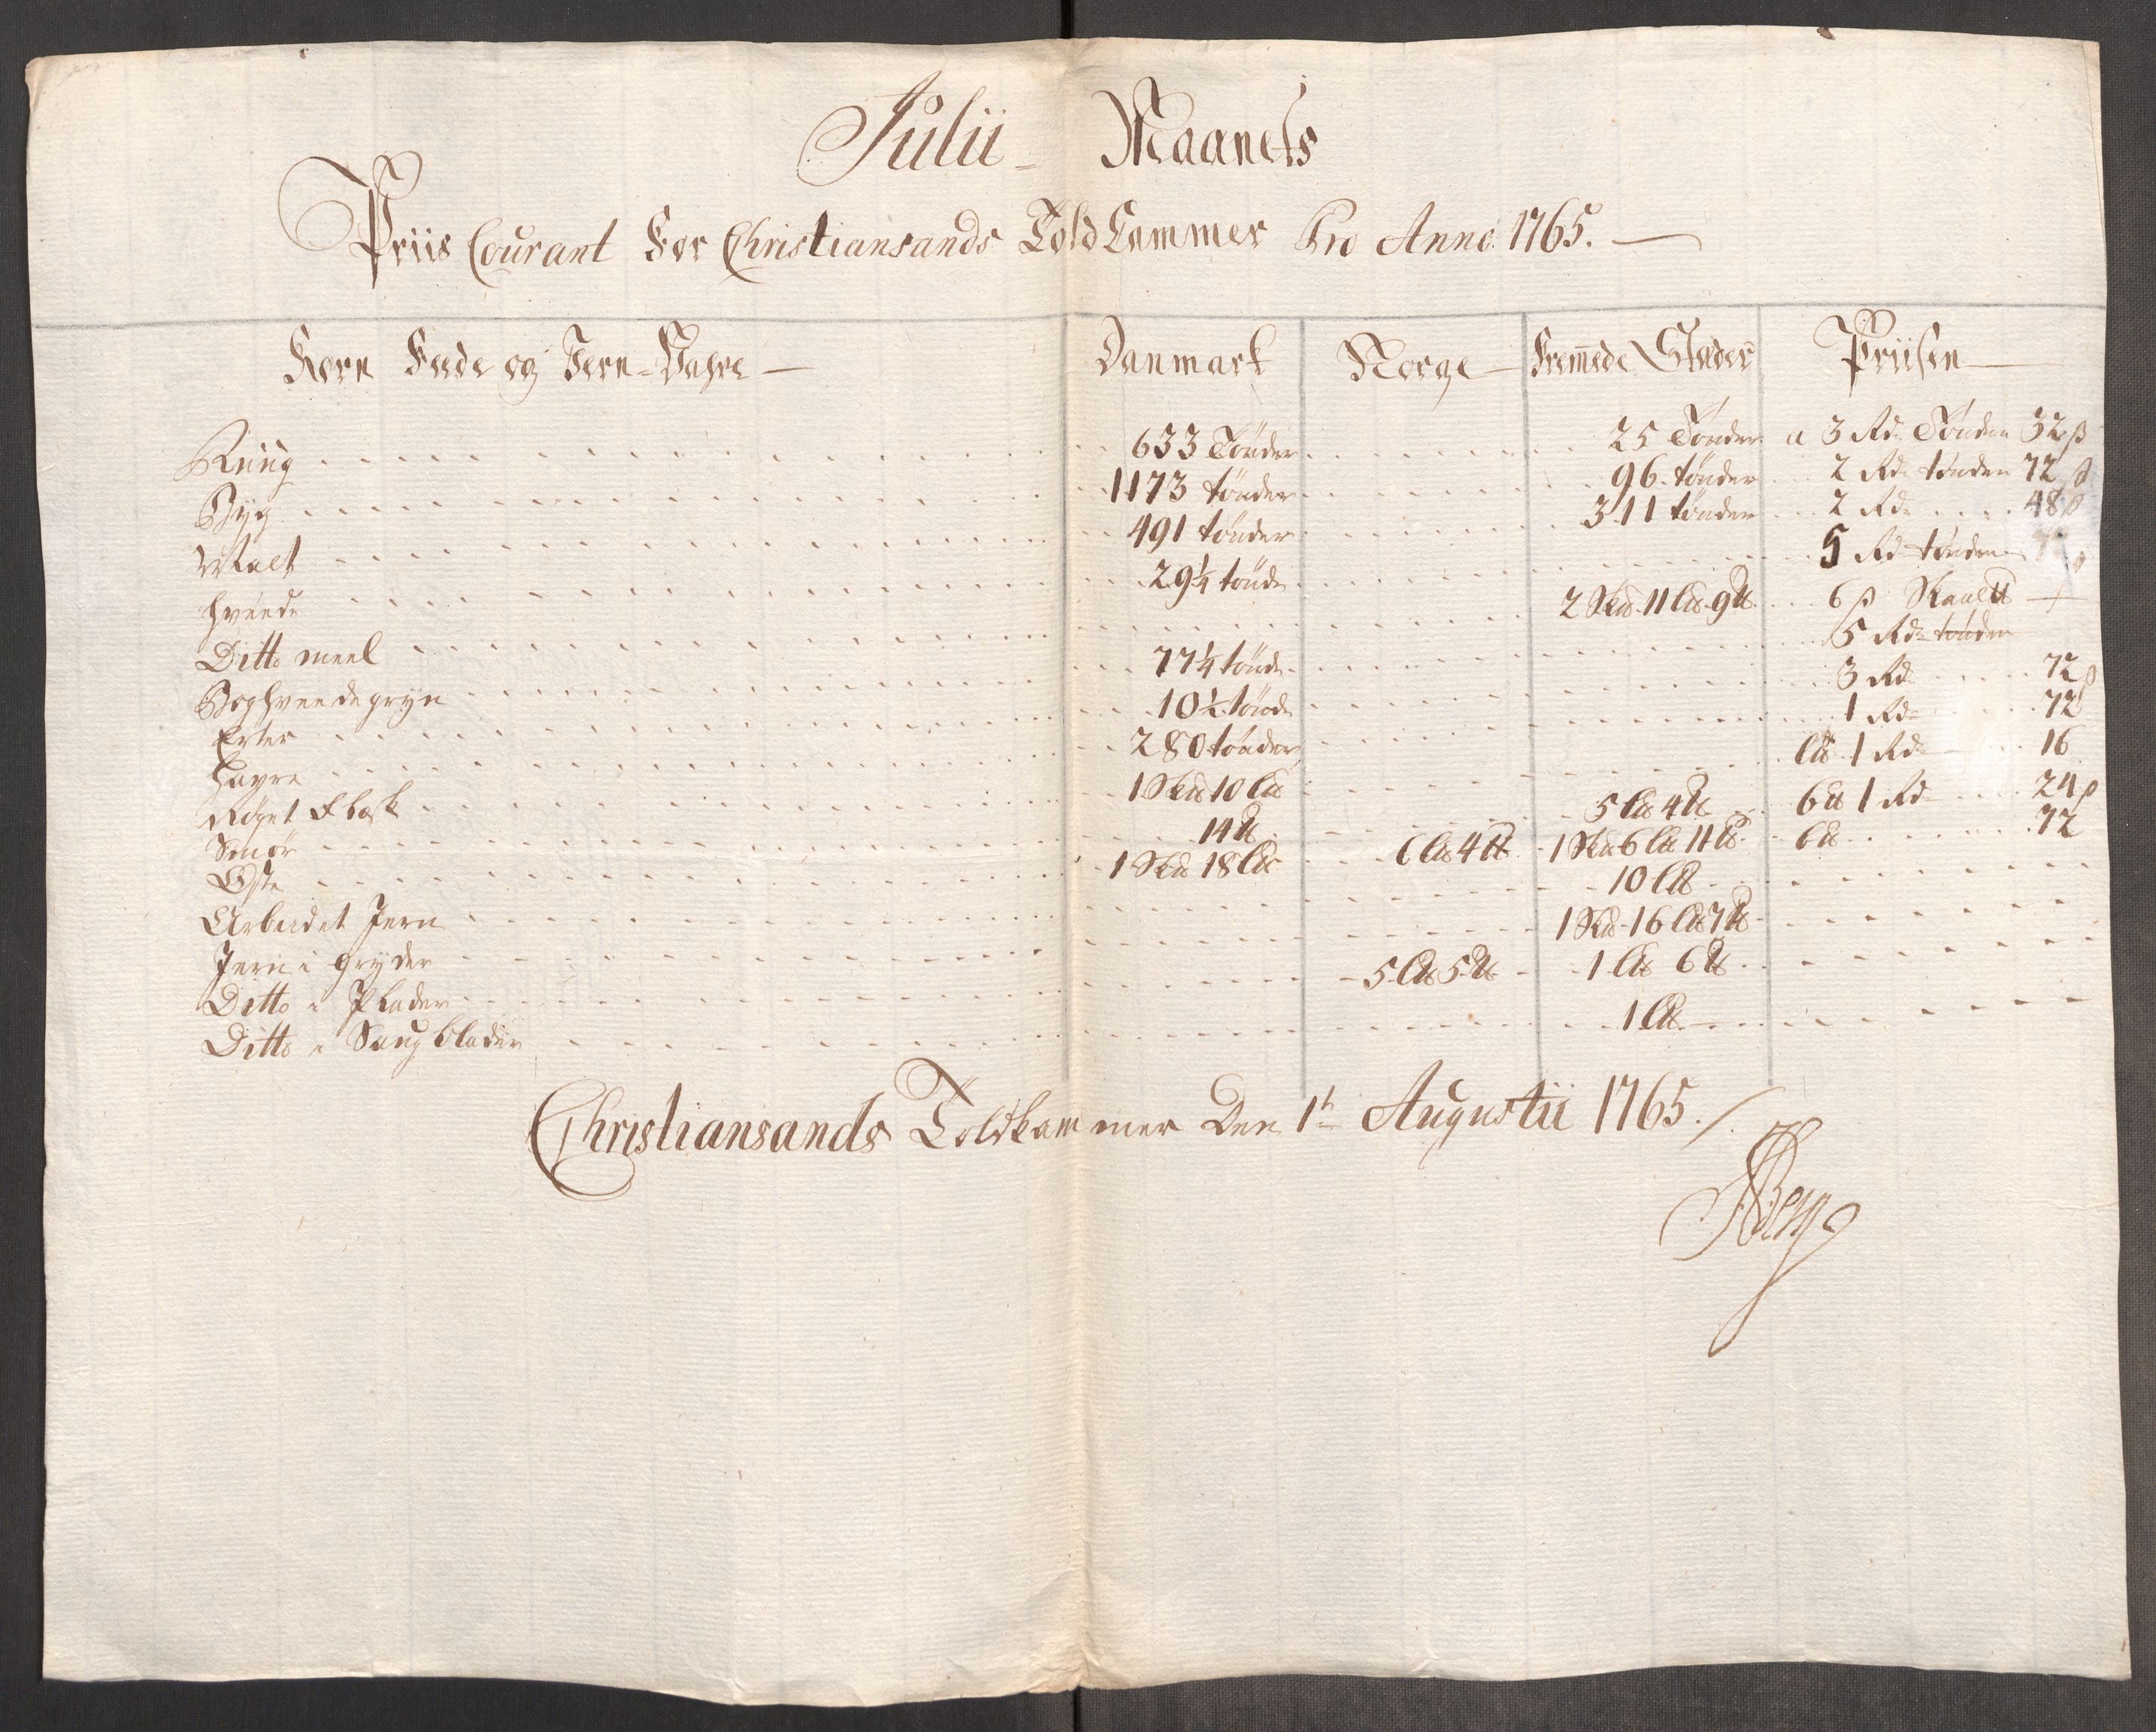 Julii Maanets
Priis Courant For Christiansands Told Cammer Pro Anno 1765.
Korn Fede og Jern-Vahre Danmark Norge Fremmede Stæder Priisen
Ruug 633 Tönder 25 Tönder a 3 Rd. Tönden 32 ß
Byg 1173 tönder 96 tönder 2 Rd. tönden 72 ß
Malt 491 tönder 311 tönder 2 Rd. 48 ß
Hveede 29¼ tönde 5 Rd tönden
Ditto meel 2 S℔ 11 L℔ 9 ℔ 6 ß Skaal℔
Boghveedegryn 77¼ tönde 5 Rd. tönden
Erter 10½ tönde 3 Rd. 72 ß
Havre 280 tönder 1 Rd. 72
Røget Flæsk 1 S℔ 10 L℔ L℔ 1 Rd. 16
Smør 14 ℔ 5 L℔ 4 ℔ L℔ 1 Rd 24 ß
Oste 1 S℔ 18 L℔ 6 L℔ 4 ℔ 1 S℔ 6 L℔ 11 ℔ L℔ 72
Arbeidet Jern 10 L℔
Jern i Gryder 1 S℔ 16 L℔ 7 ℔
Ditto i Plader 5 L℔ 5 ℔ 1 L℔ 6 ℔
Ditto i Saugblader 1 L℔
Christiansands Toldkammer Den 1t Augustii 1765.